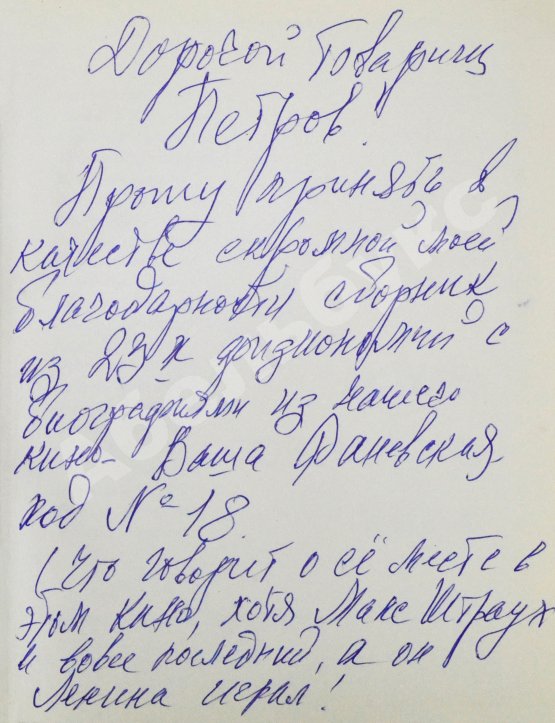 Дорогой Товарищ
Петров.
Прошу принять в
качестве скромной моей
благодарности сборник
из 23-х физиономий с
биографиями из нашего
кино- Ваша Раневская
ход № 18.
(Что говорит о её месте в
этом кино, хотя Макс Штраух
и вовсе последний, а он
Ленина играл!